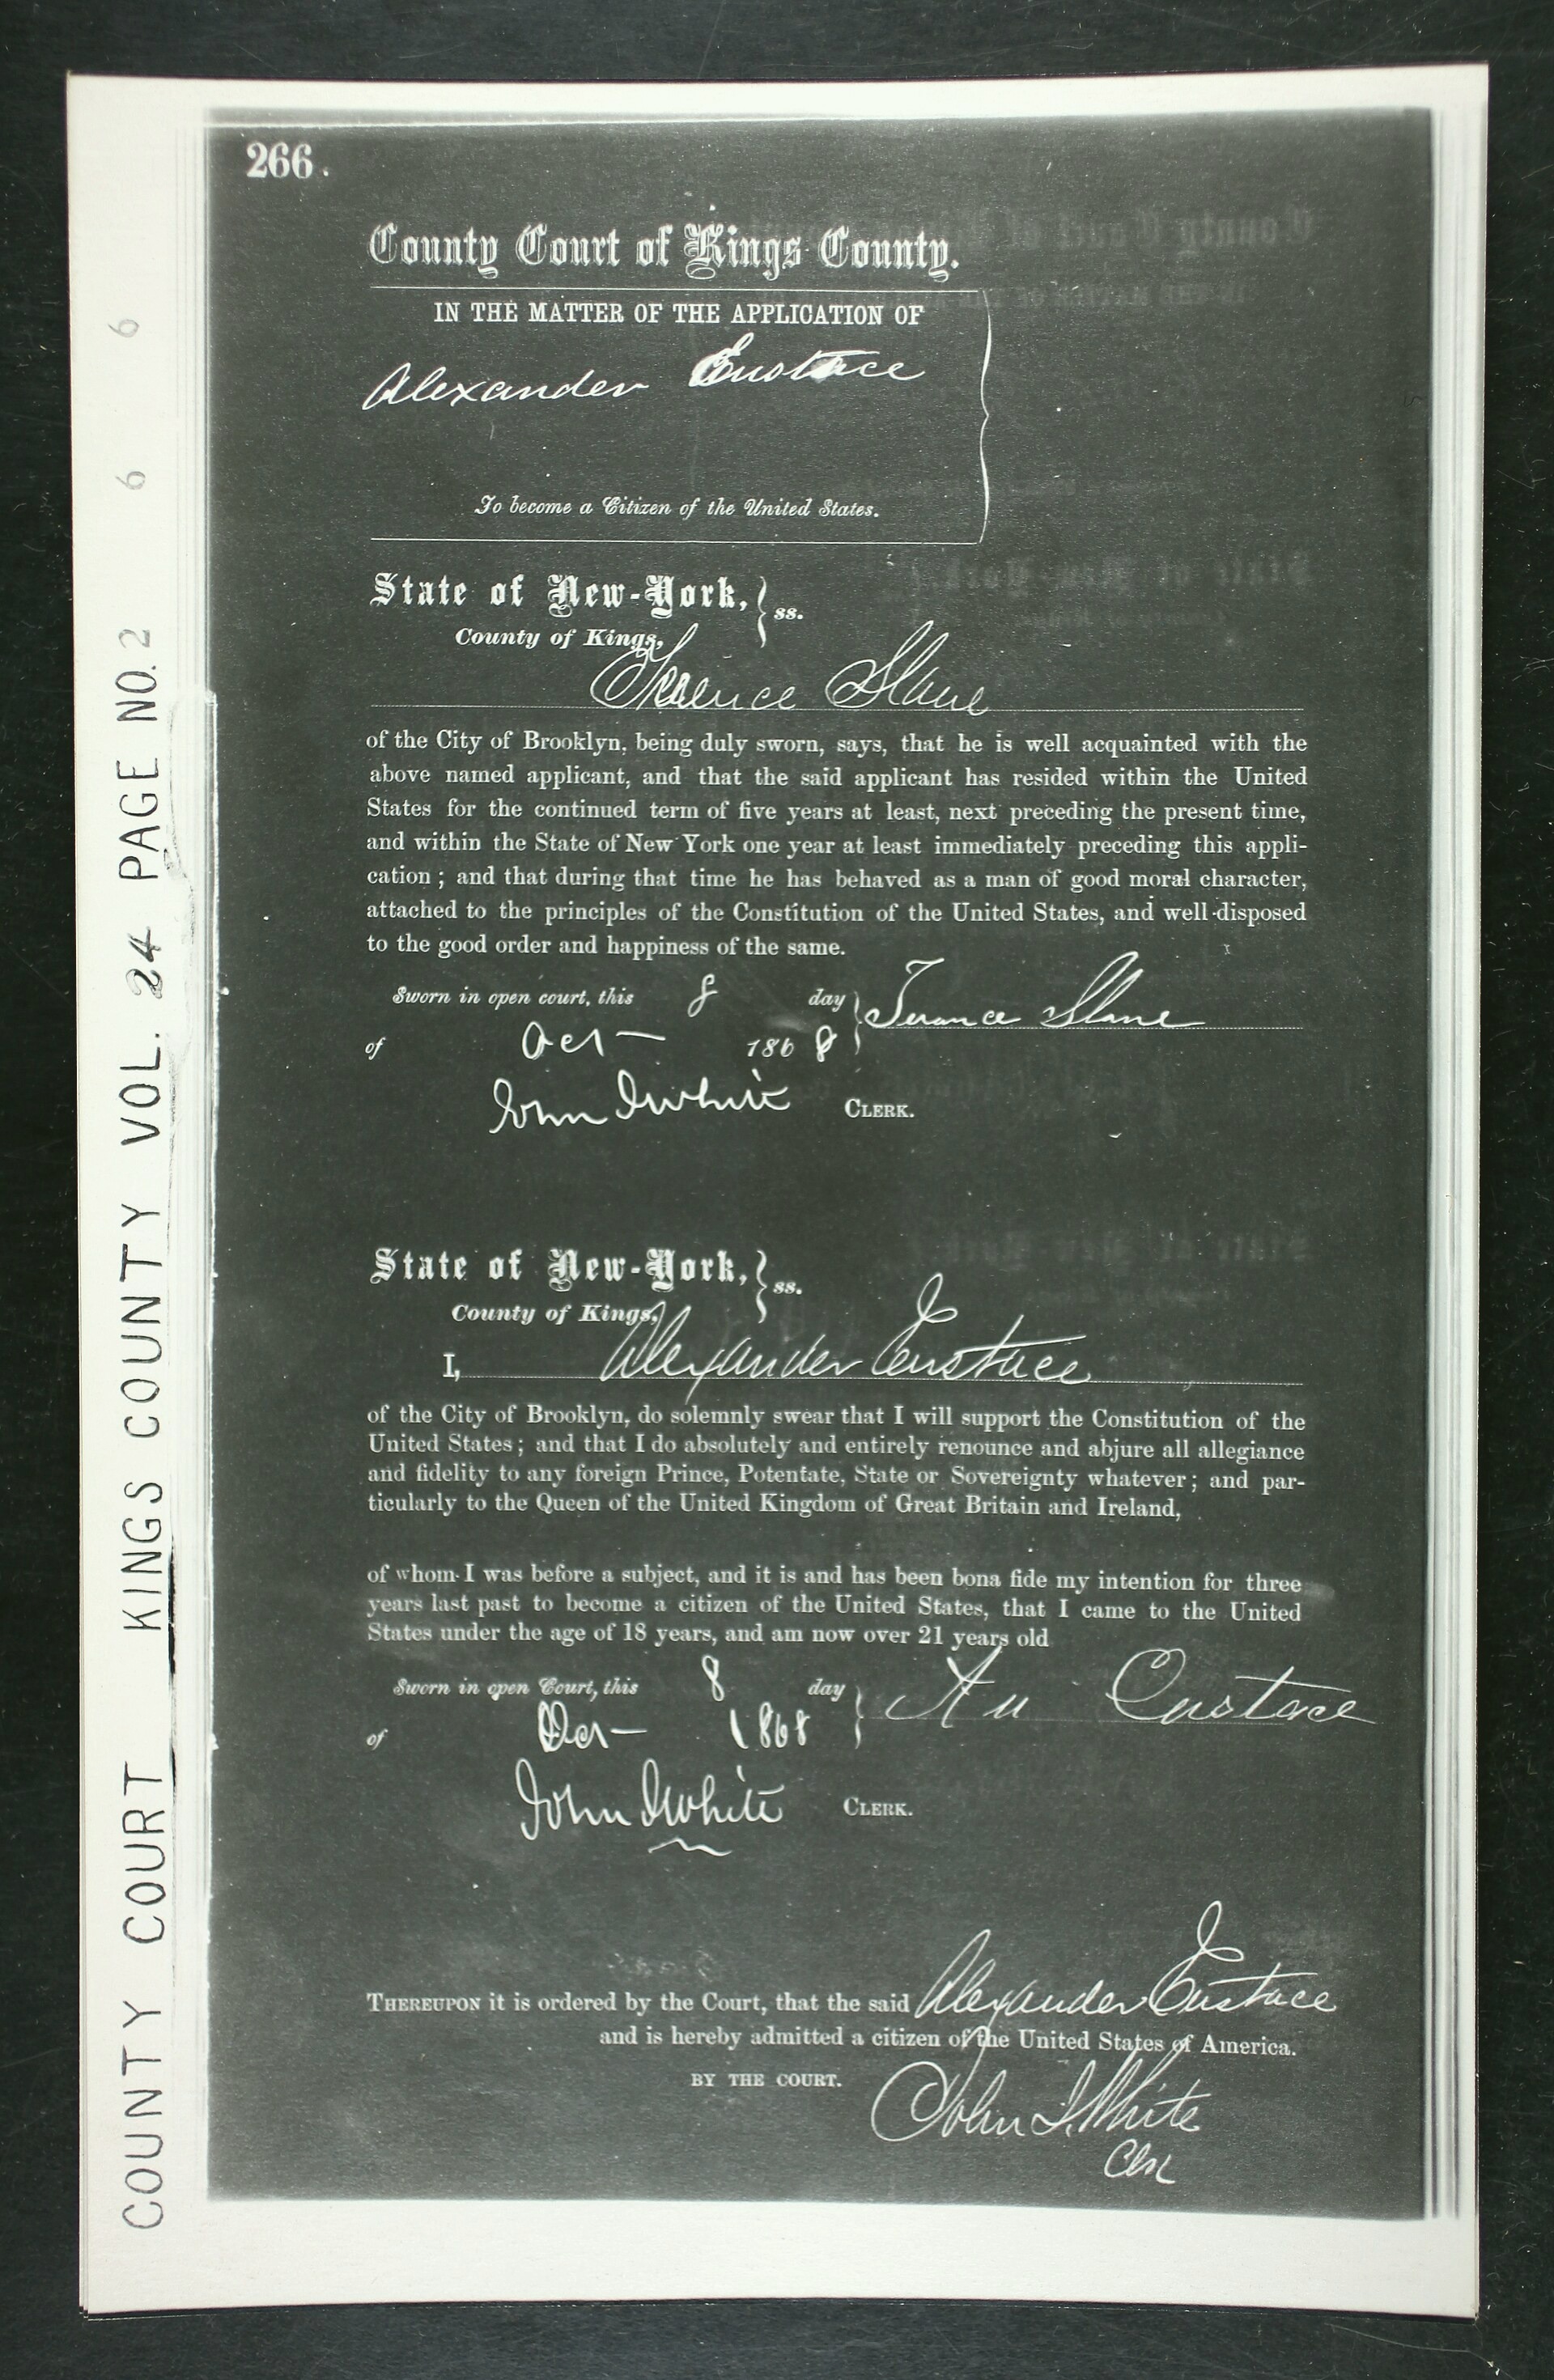 266.
County Court of Kings County.
IN THE MATTER OF THE APPLICATION OF
Alexander Eustace
To become a Citizen of the United States.
State of New-York, } ss.
County of Kings,
Terence Slane
of the City of Brooklyn, being duly sworn, says, that he is well acquainted with the
above named applicant, and that the said applicant has resided within the United
States for the continued term of five years at least, next preceding the present time,
and within the State of New York one year at least immediately preceding this appli-
cation ; and that during that time he has behaved as a man of good moral character,
attached to the principles of the Constitution of the United States, and well-disposed
to the good order and happiness of the same.
Sworn in open court, this 8 day } Terance Slane
of Oct 1868
John I White CLERK.
State of New-York, } ss.
County of Kings,
I, Alexander Eustace
of the City of Brooklyn, do solemnly swear that I will support the Constitution of the
United States ; and that I do absolutely and entirely renounce and abjure all allegiance
and fidelity to any foreign Prince, Potentate, State or Sovereignty whatever ; and par-
ticularly to the Queen of the United Kingdom of Great Britain and Ireland,
of whom I was before a subject, and it is and has been bona fide my intention for three
years last past to become a citizen of the United States, that I came to the United
States under the age of 18 years, and am now over 21 years old
Sworn in open Court, this 8 day } Eustace
of Oct 1868
John I White CLERK.
THEREUPON it is ordered by the Court, that the said Alexander Eustace
and is hereby admitted a citizen of the United States of America.
BY THE COURT.
John I. White
Clk
COUNTY COURT KINGS COUNTY VOL. 24 PAGE NO. 2 6 6